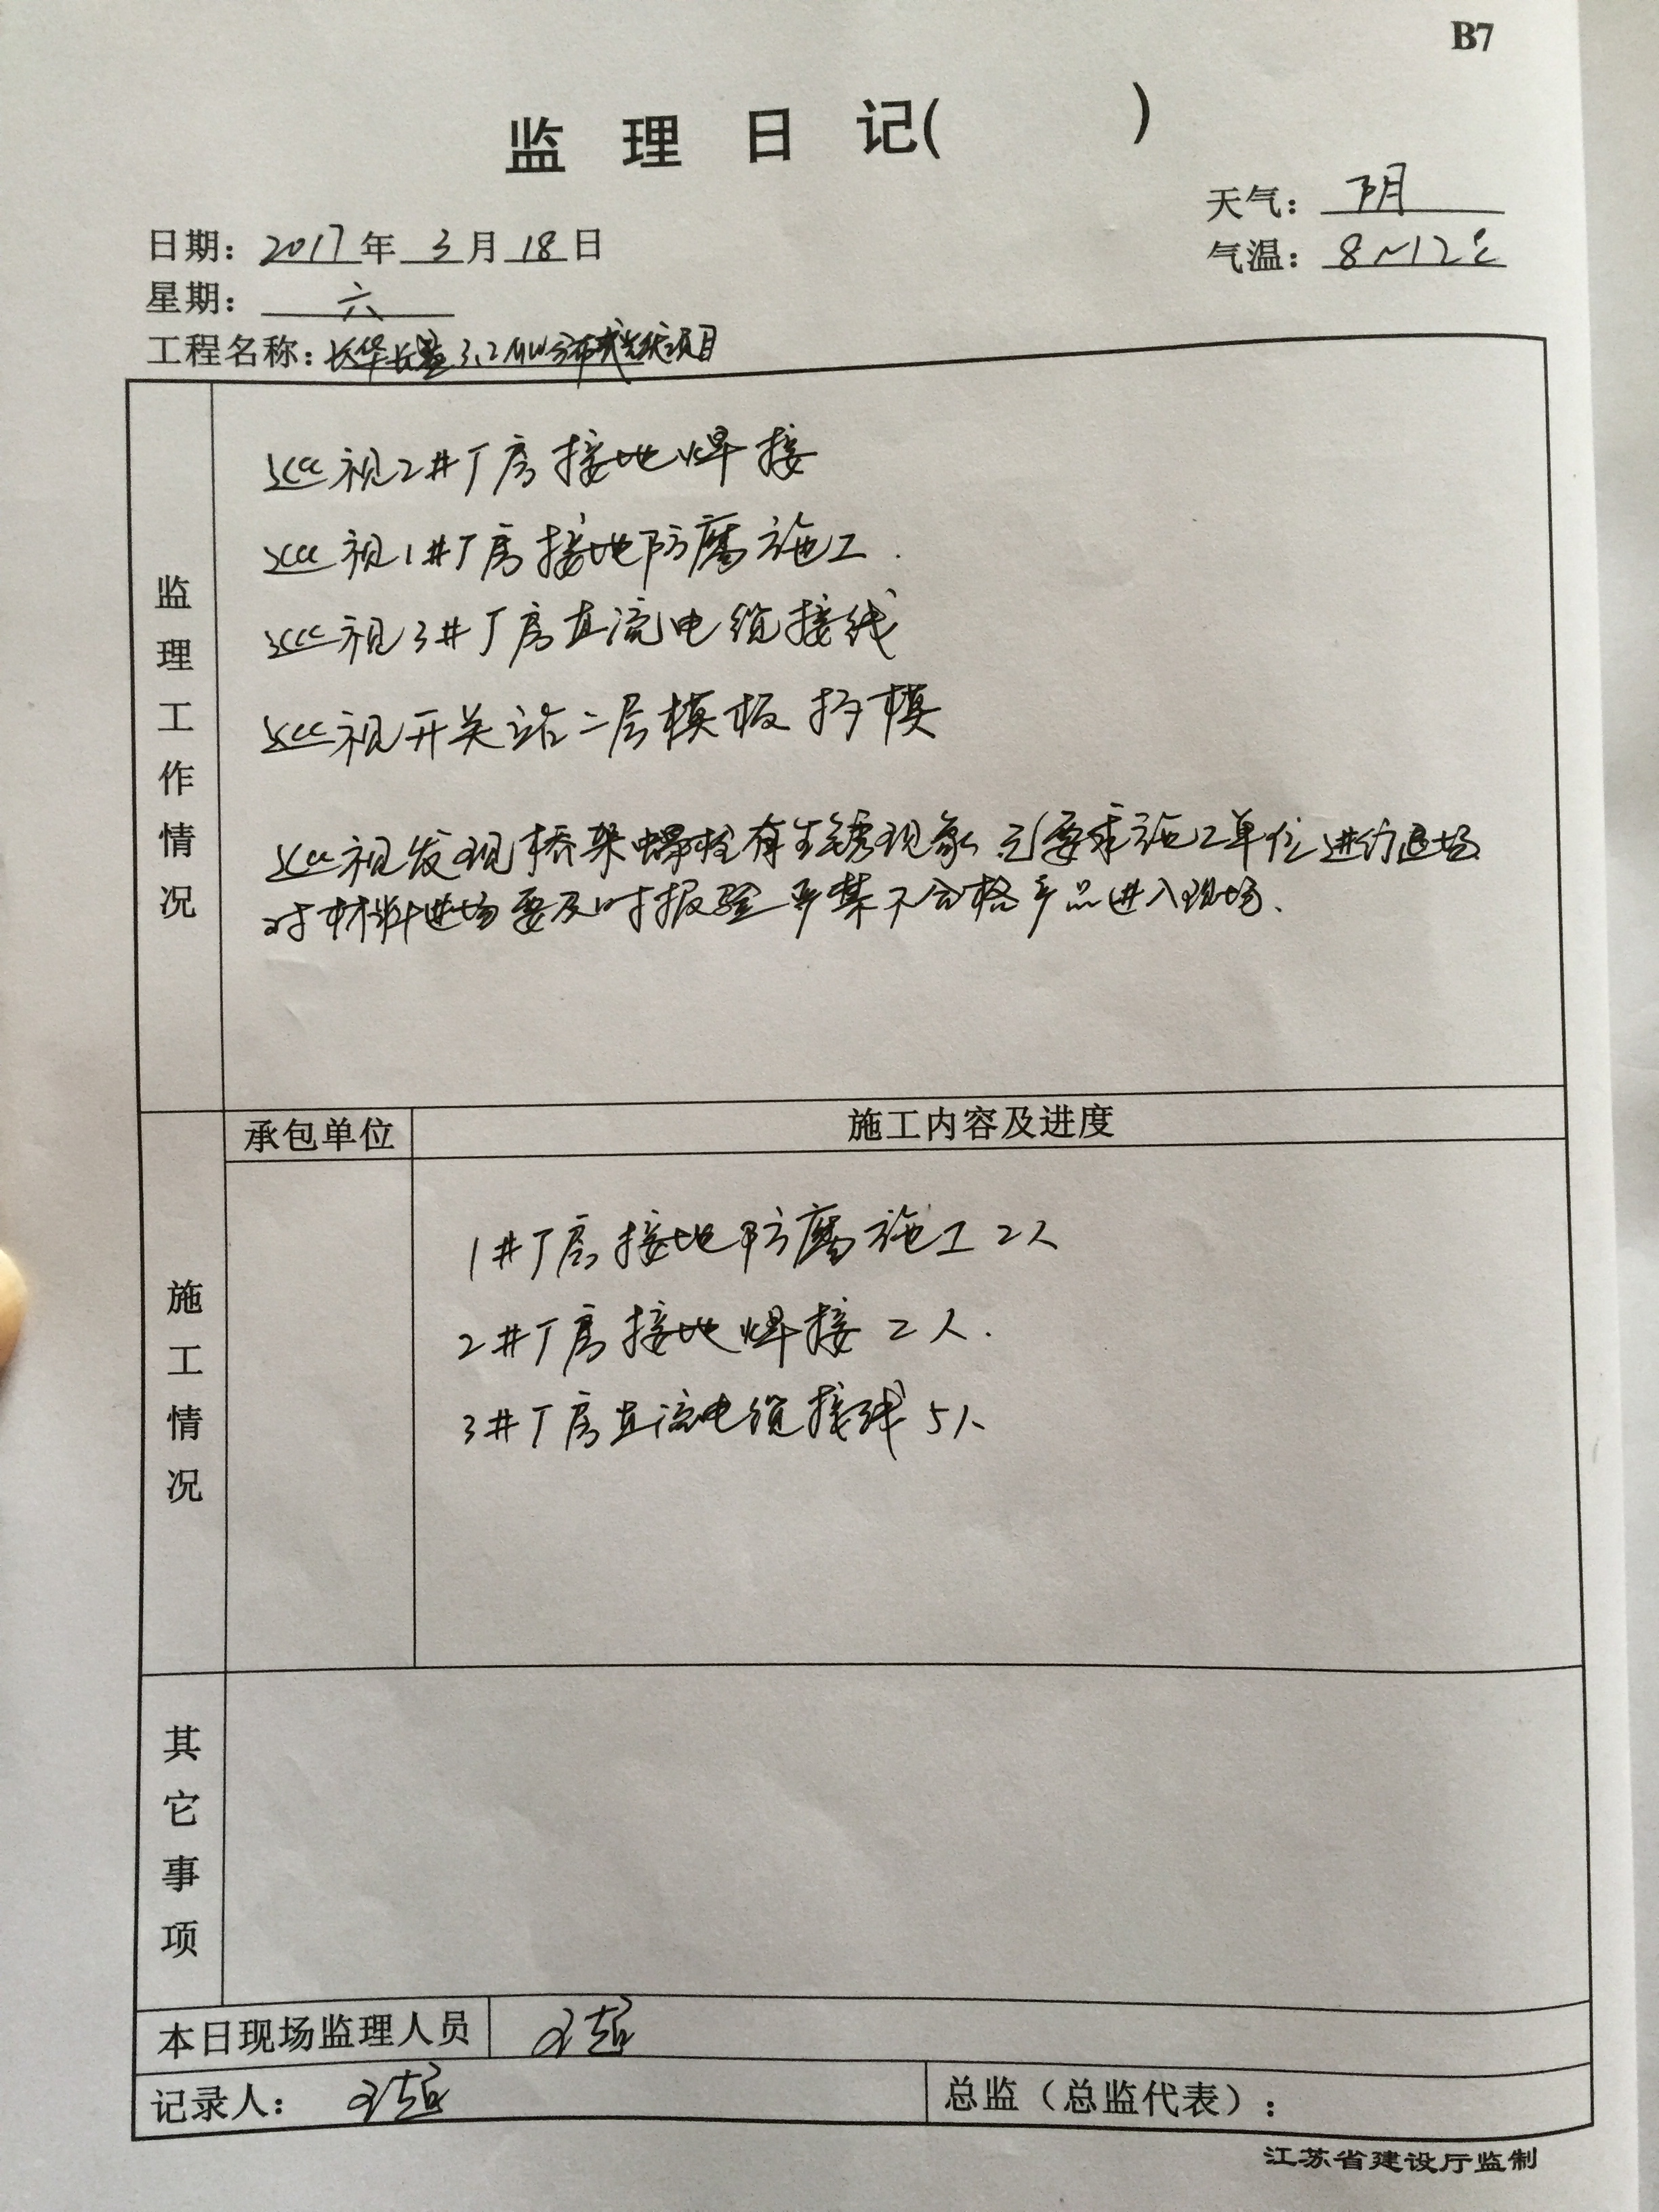 B7
监理日记( )
天气：阴
日期：2017年3月18日
气温：8~12℃
星期：六
工程名称：长华长盈3.2MW分布式光伏项目
监理工作情况
巡视2#厂房接地焊接
巡视1#厂房接地防腐施工.
巡视3#厂房直流电缆接线
巡视开关站二层模板拆模
巡视发现桥架螺栓有生锈现象 已要求施工单位进行退场
对材料进场要及时报验 严禁不合格产品进入现场、
承包单位 施工内容及进度
施工情况
1#厂房接地防腐施工 2人
2#厂房接地焊接 2人.
3#厂房直流电缆接线 5人
其它事项
本日现场监理人员
记录人： 总监（总监代表）：
江苏省建设厅监制